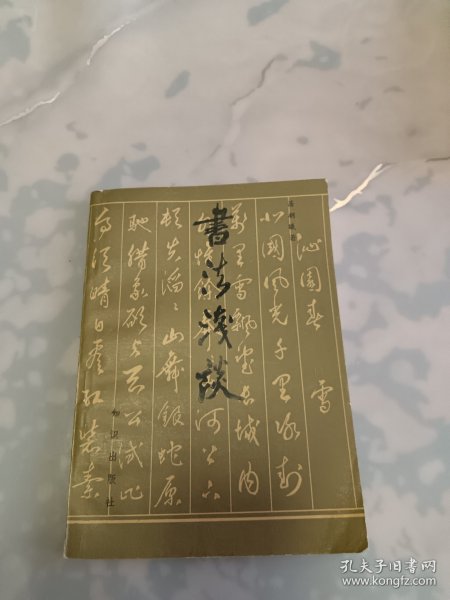 沁園春 雪
北國風光千里冰封
萬里雪飄望長城內
河上下
頓失滔滔山舞銀蛇原
馳蠟象欲与天公試比
高須晴日看红装素
書法淺談
知识出版社
孔夫子旧书网
www.kongfz.com